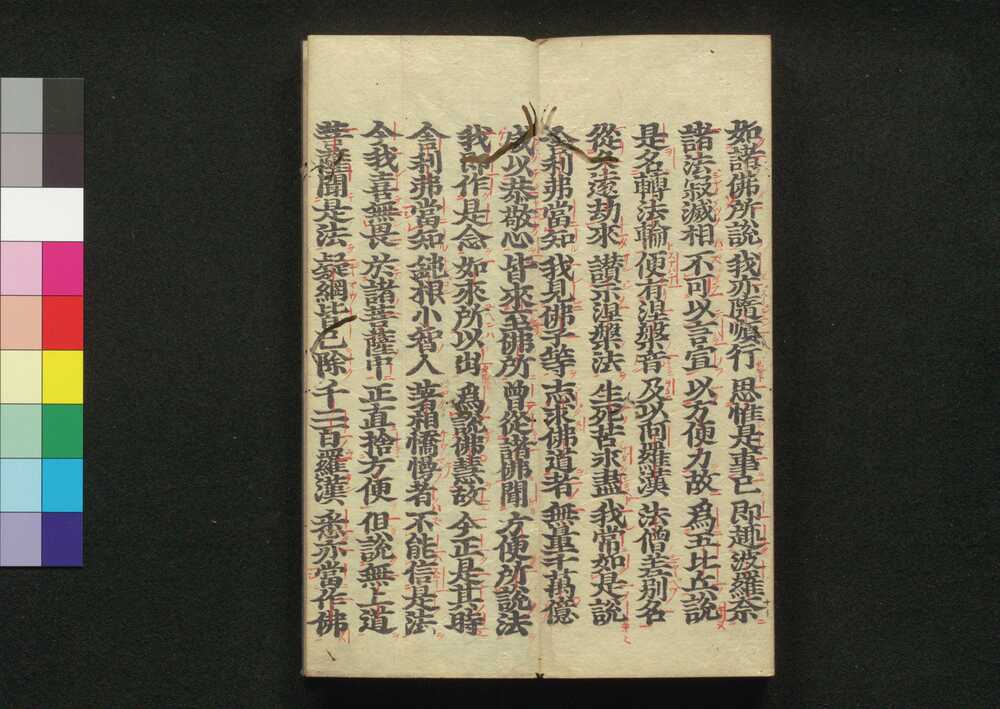 如諸佛所說 我亦隨順行 思惟是事已 即趣波羅奈
諸法寂滅相 不可以言宣 以方便力故 為五比丘說
是名轉法輪 便有涅槃音 及以阿羅漢 法僧差別名
從久遠劫來 讚示涅槃法 生死苦永盡 我常如是說
舍利弗當知 我見佛子等 志求佛道者 無量千萬億
咸以恭敬心 皆來至佛所 曾從諸佛聞 方便所說法
我即作是念 如來所以出 為說佛慧故 今正是其時
舍利弗當知 鈍根小智人 著相憍慢者 不能信是法
今我喜無畏 於諸菩薩中 正直捨方便 但說無上道
菩薩聞是法 疑網皆已除 千二百羅漢 悉亦當作佛